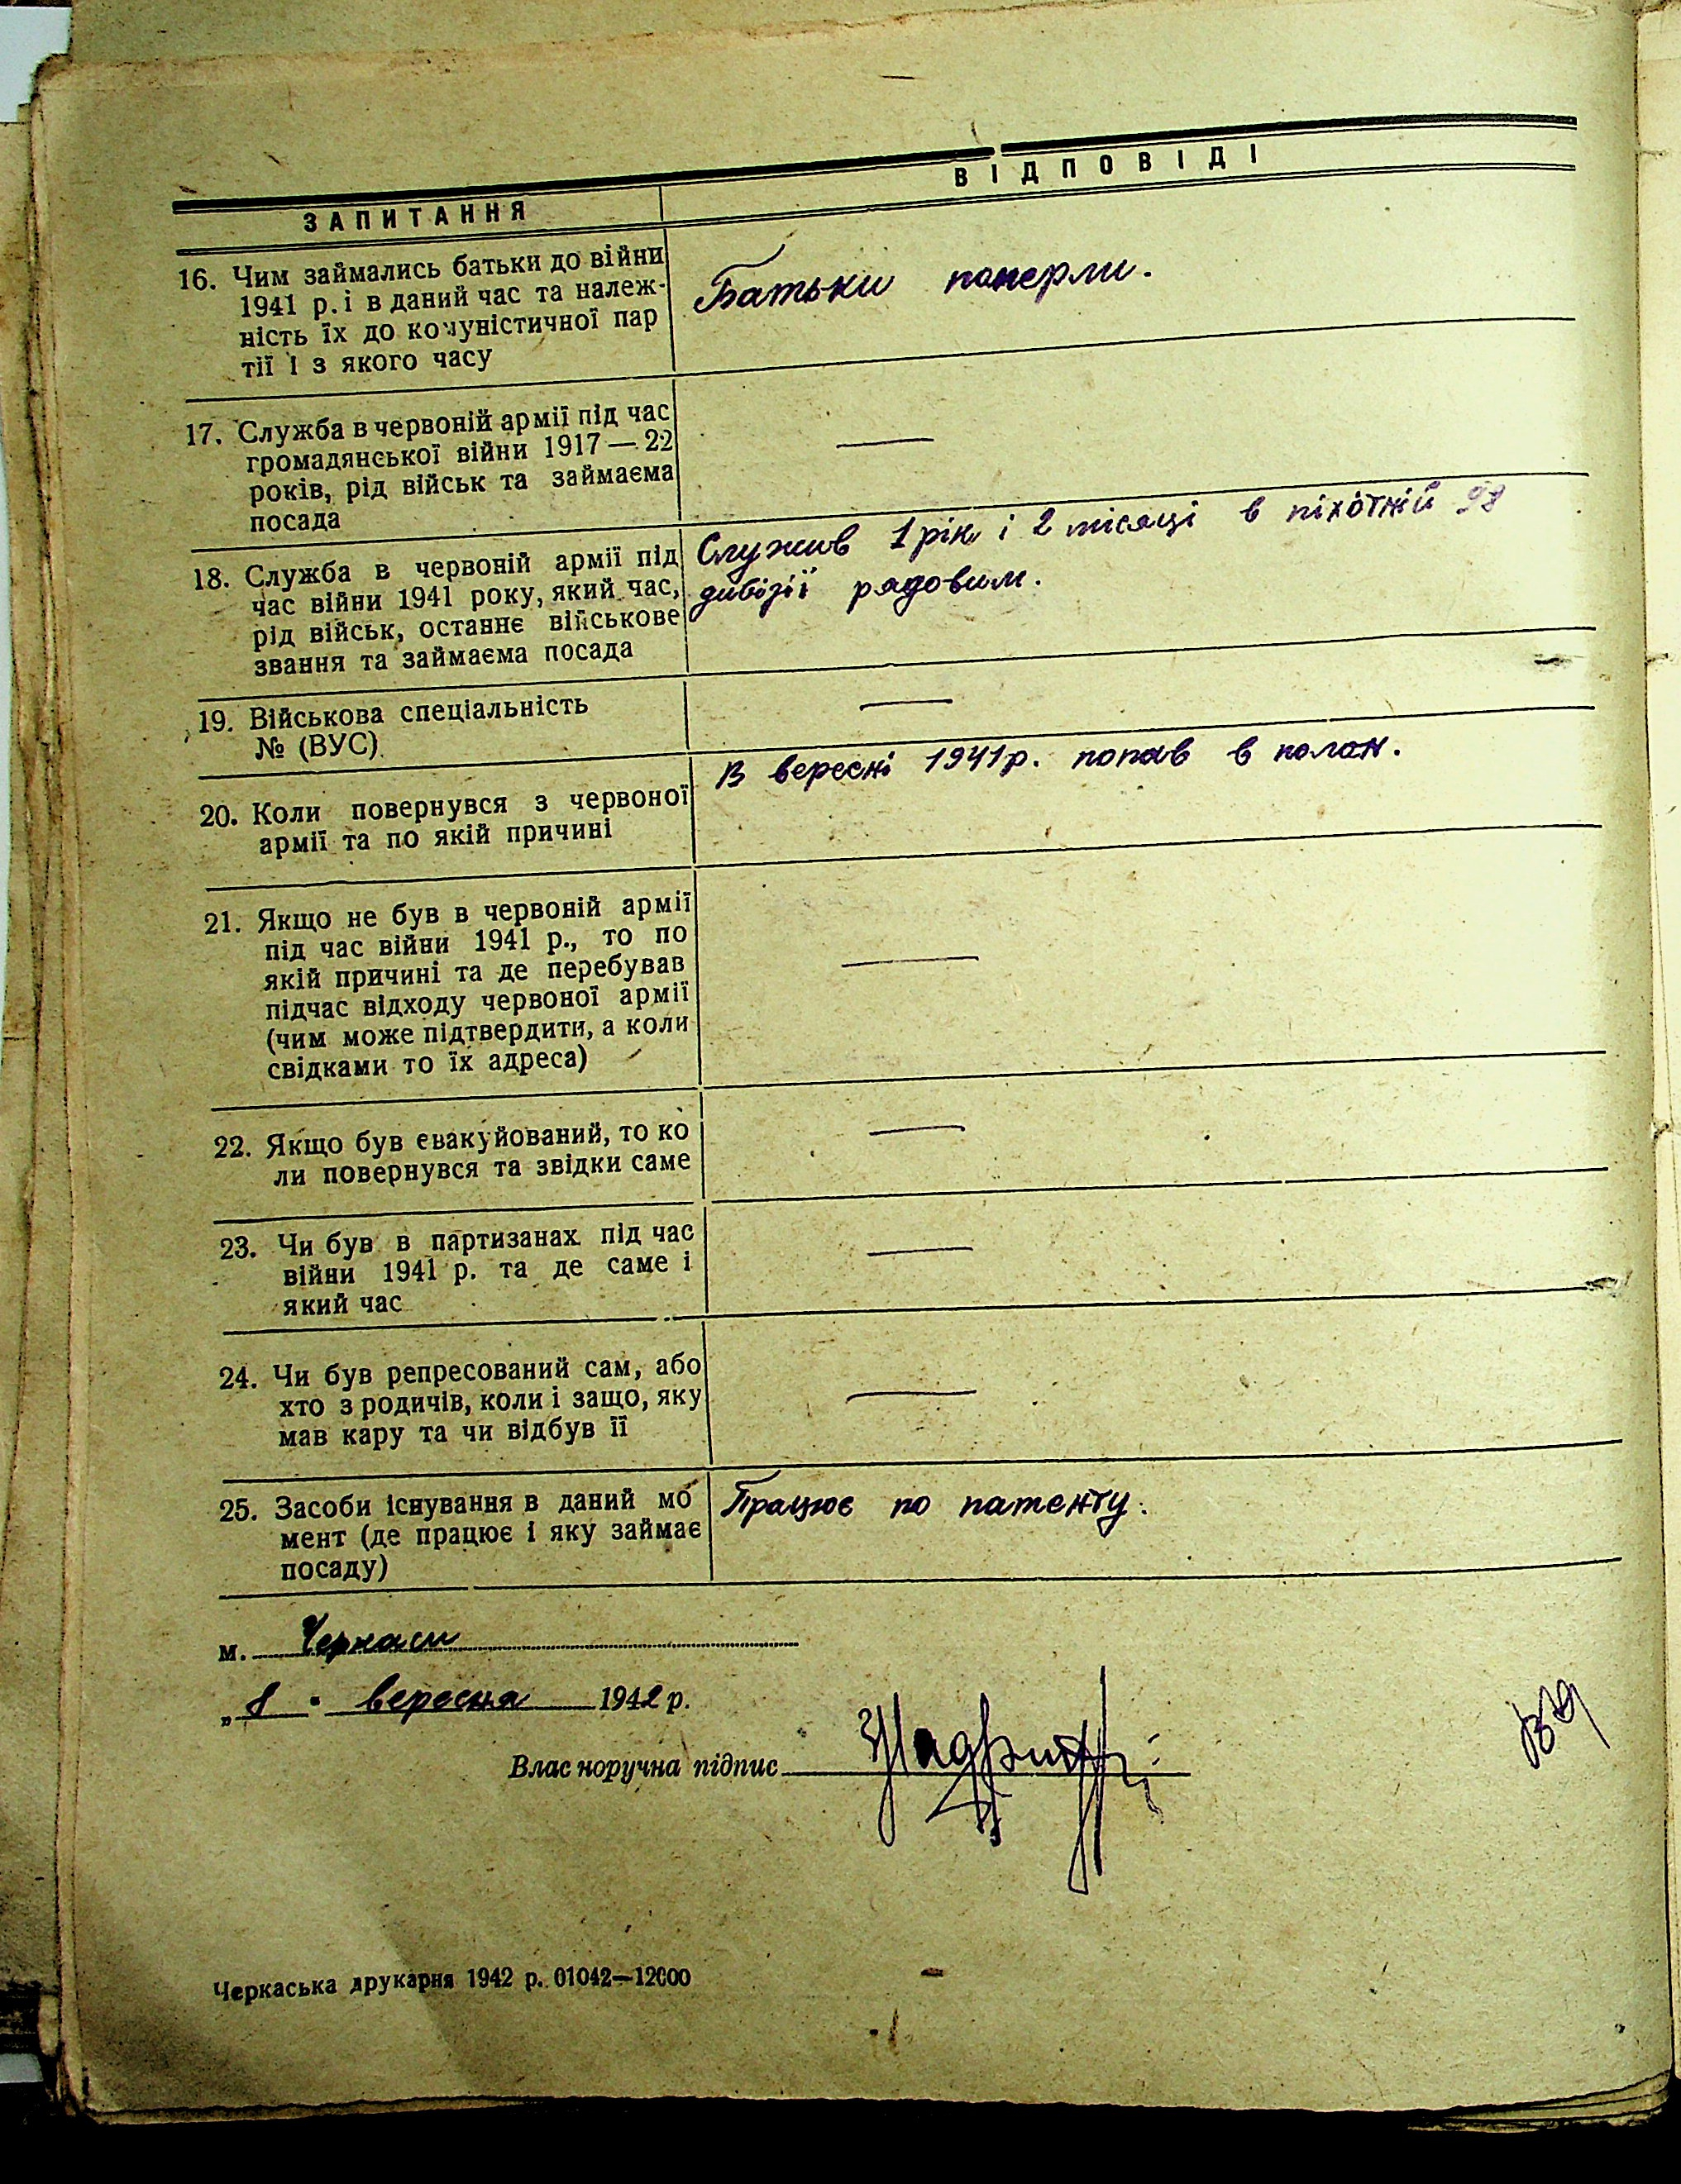 ЗАПИТАННЯ
ВІДПОВІДІ
16. Чим займались батьки до війни
1941 р. і в даний час та належ-
ність їх до комуністичної пар
тії і з якого часу
Батьки померли.
17. Служба в червоній армії під час
громадянської війни 1917 — 22
років, рід військ та займаєма
посада
—
18. Служба в червоній армії під
час війни 1941 року, який час,
рід військ, останнє військове
звання та займаєма посада
Служив 1 рік і 2 місяці в піхотній 98
дивізії рядовим.
19. Військова спеціальність
№ (ВУС)
—
20. Коли повернувся з червоної
армії та по якій причині
В вересні 1941 р. попав в полон.
21. Якщо не був в червоній армії
під час війни 1941 р., то по
якій причині та де перебував
підчас відходу червоної армії
(чим може підтвердити, а коли
свідками то їх адреса)
—
22. Якщо був евакуйований, то ко
ли повернувся та звідки саме
—
23. Чи був в партизанах під час
війни 1941 р. та де саме і
який час
—
24. Чи був репресований сам, або
хто з родичів, коли і защо, яку
мав кару та чи відбув її
—
25. Засоби існування в даний мо
мент (де працює і яку займає
посаду)
Працює по патенту.
м. Черкаси
„8" вересня 1942 р.
Власноручна підпис
Черкаська друкарня 1942 р. 01042—12000